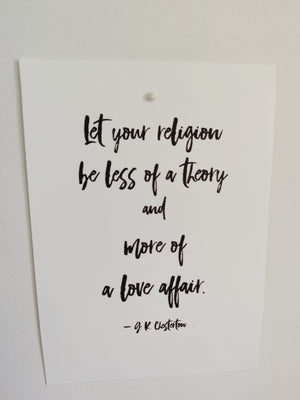 Let your religion
be less of a theory
and
more of
a love affair.
— G. K. Chesterton